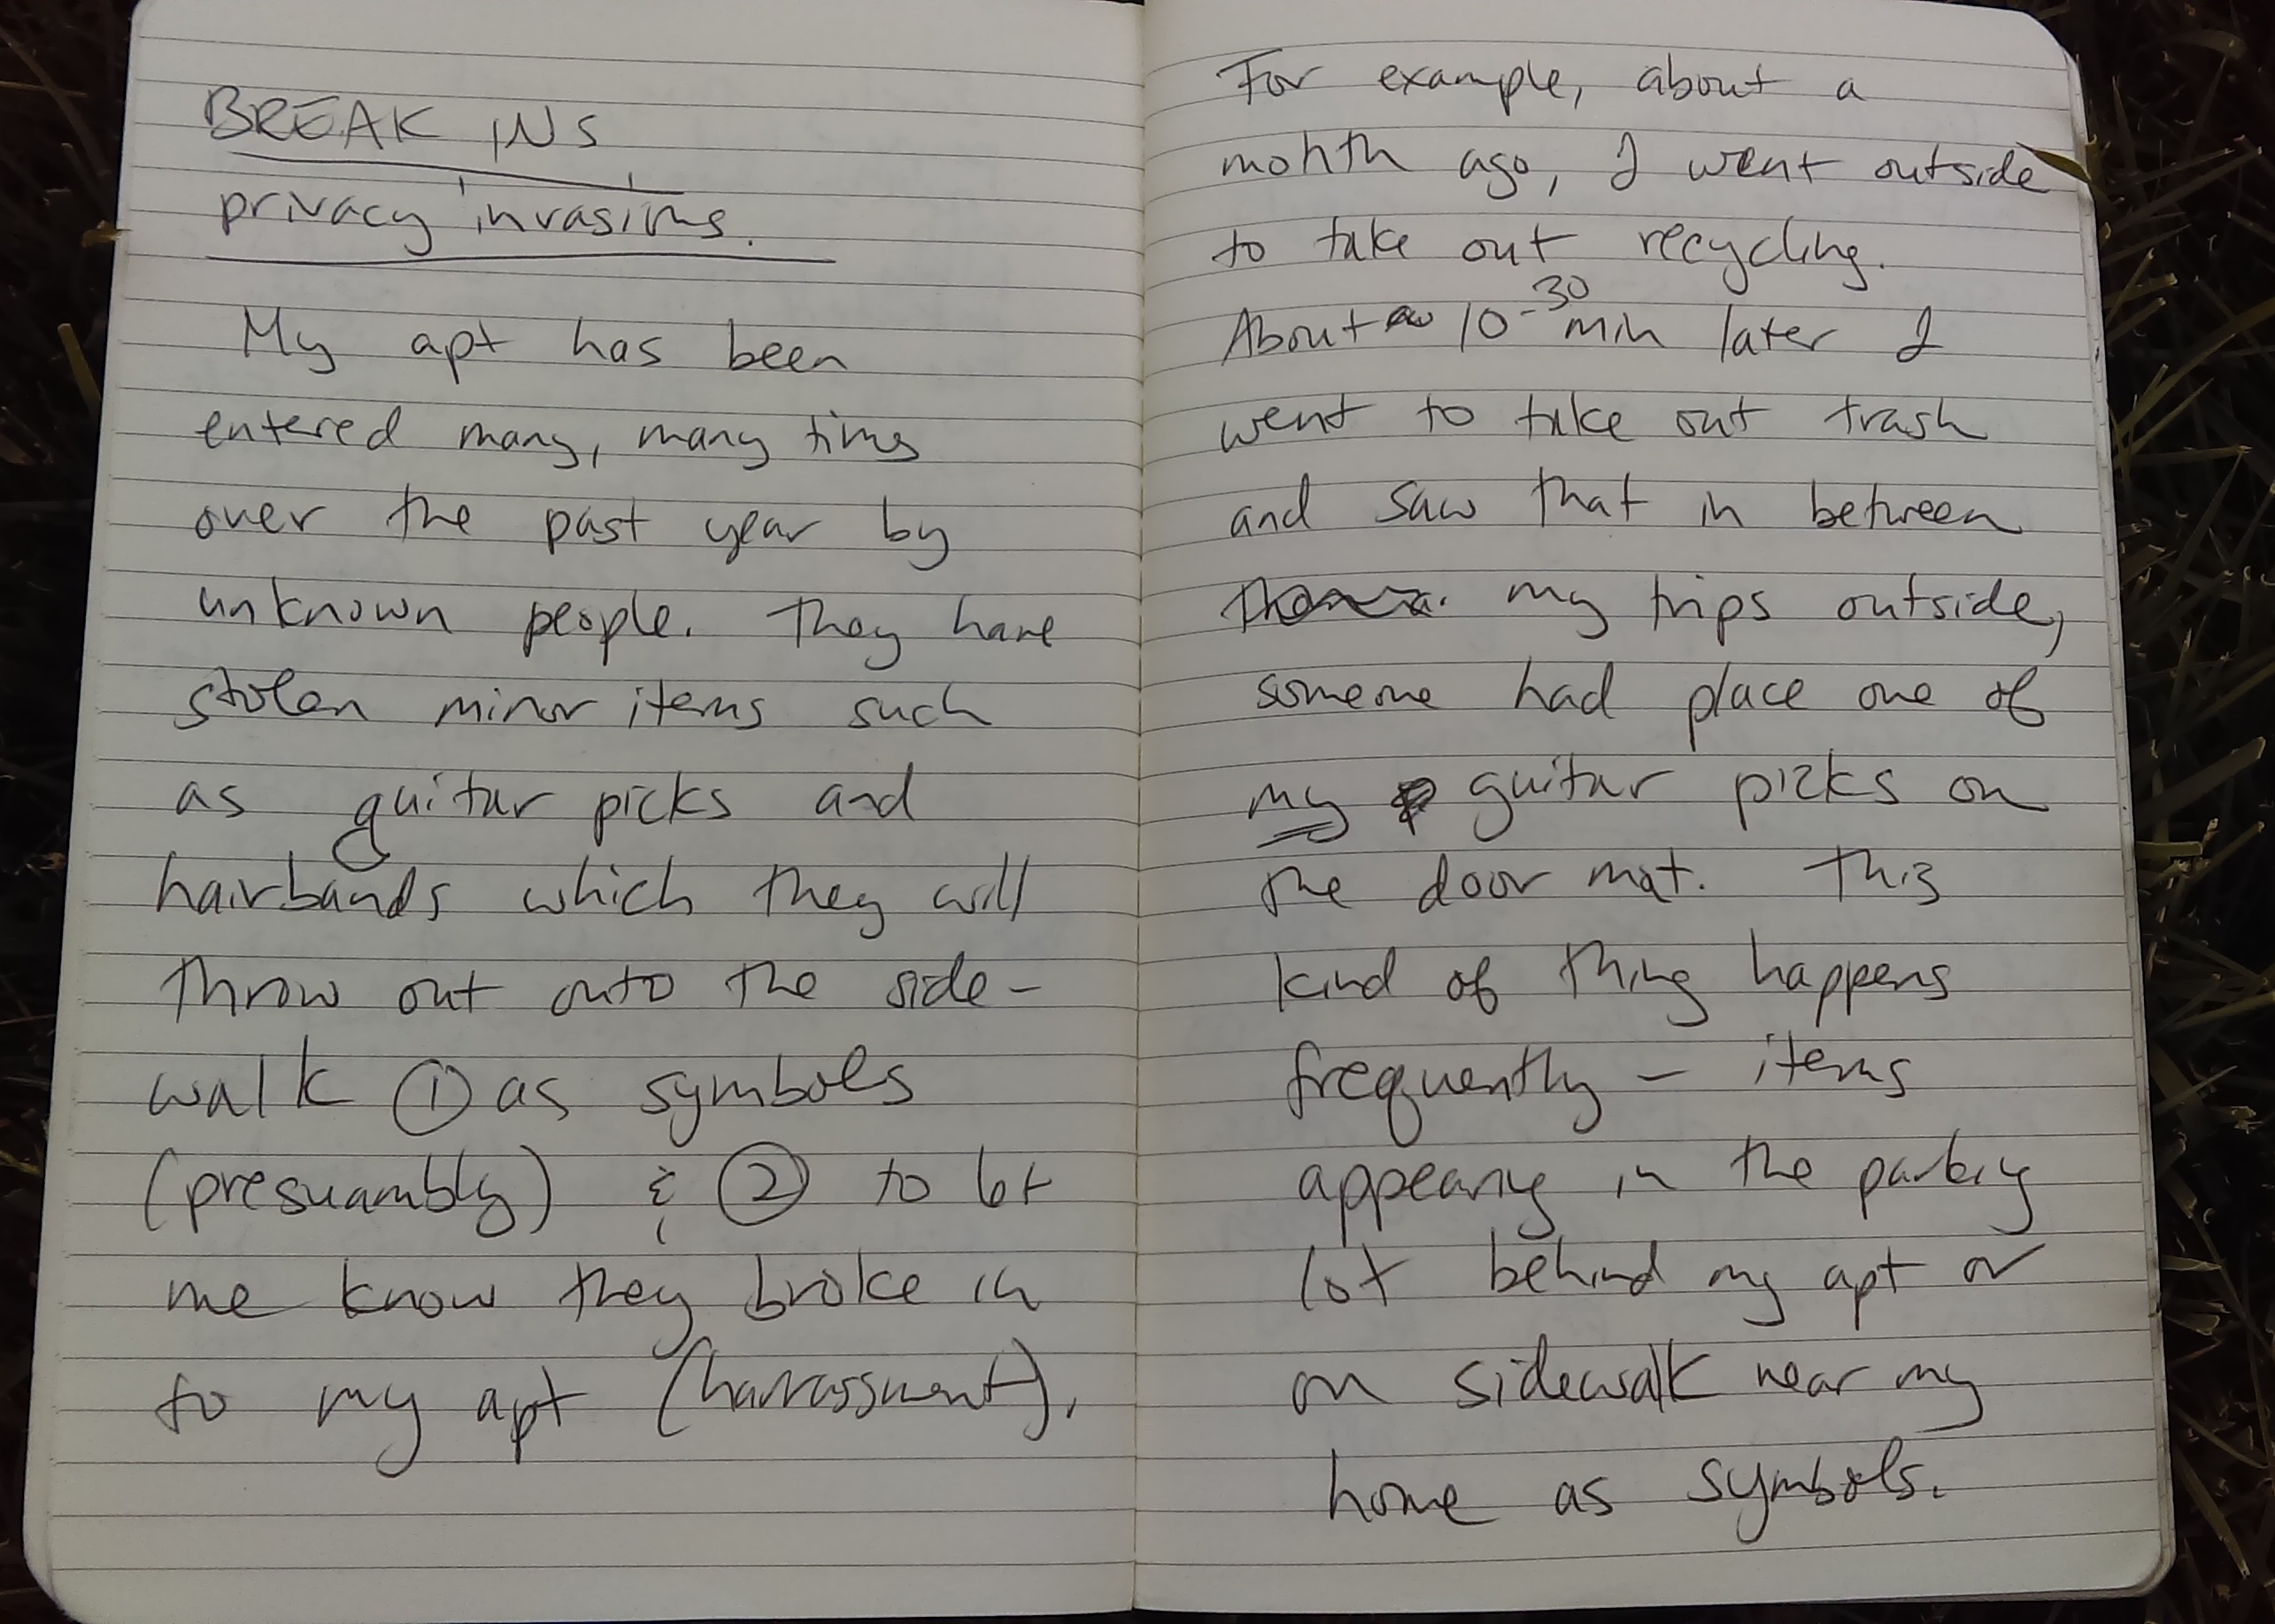 BREAK INS
privacy invasions.
My apt has been
entered many, many times
over the past year by
unknown people. They have
stolen minor items such
as guitar picks and
hairbands which they will
throw out onto the side-
walk ① as symbols
(presuambly) & ② to let
me know they broke in
to my apt (harrassment).
For example, about a
month ago, I went outside
to take out recycling.
About 10-30 min later I
went to take out trash
and saw that in between
my trips outside,
someone had place one of
my guitar picks on
the door mat. This
kind of thing happens
frequently - items
appearing in the parking
lot behind my apt or
on sidewalk near my
home as symbols.